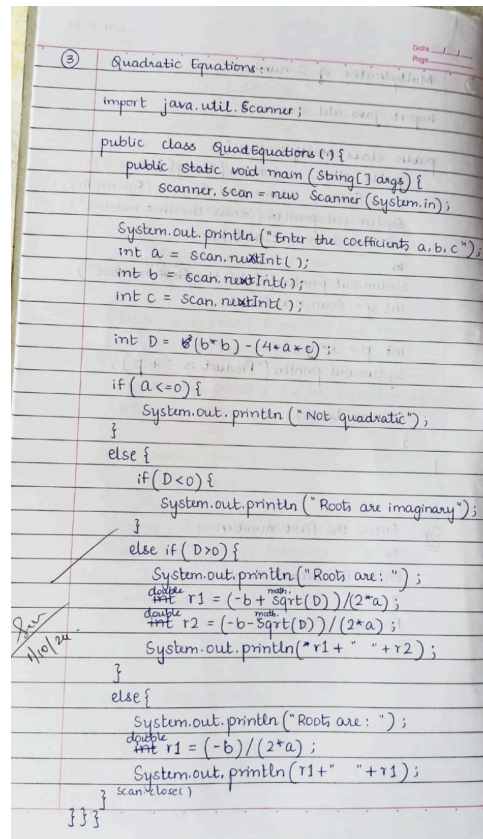 Date __/__/__
Page ____
③ Quadratic Equations:
import java.util.Scanner;
public class QuadEquations(){
public static void main (String[] args) {
scanner. scan = new Scanner (System.in);
System.out.println ("Enter the coefficients a, b, c");
int a = scan.nextInt( );
int b = scan.nextInt( );
int c = scan.nextInt( );
int D = (b*b) - (4*a*c) ;
if ( a <= 0) {
System.out.println ("Not quadratic") ;
}
else {
if ( D<0) {
System.out.println ("Roots are imaginary");
}
else if ( D>0) {
System.out.println ("Roots are: ") ;
double int r1 = (-b + math. Sqrt (D) )/(2*a) ;
double int r2 = (-b - math. Sqrt (D) )/(2*a) ;
System.out.println( r1 + " " + r2 ) ;
}
else {
System.out.println ("Roots are: ") ;
double int r1 = (-b) / (2*a) ;
System.out.println (r1 + " " + r1 ) ;
} scan.close()
} } }
1/10/24.